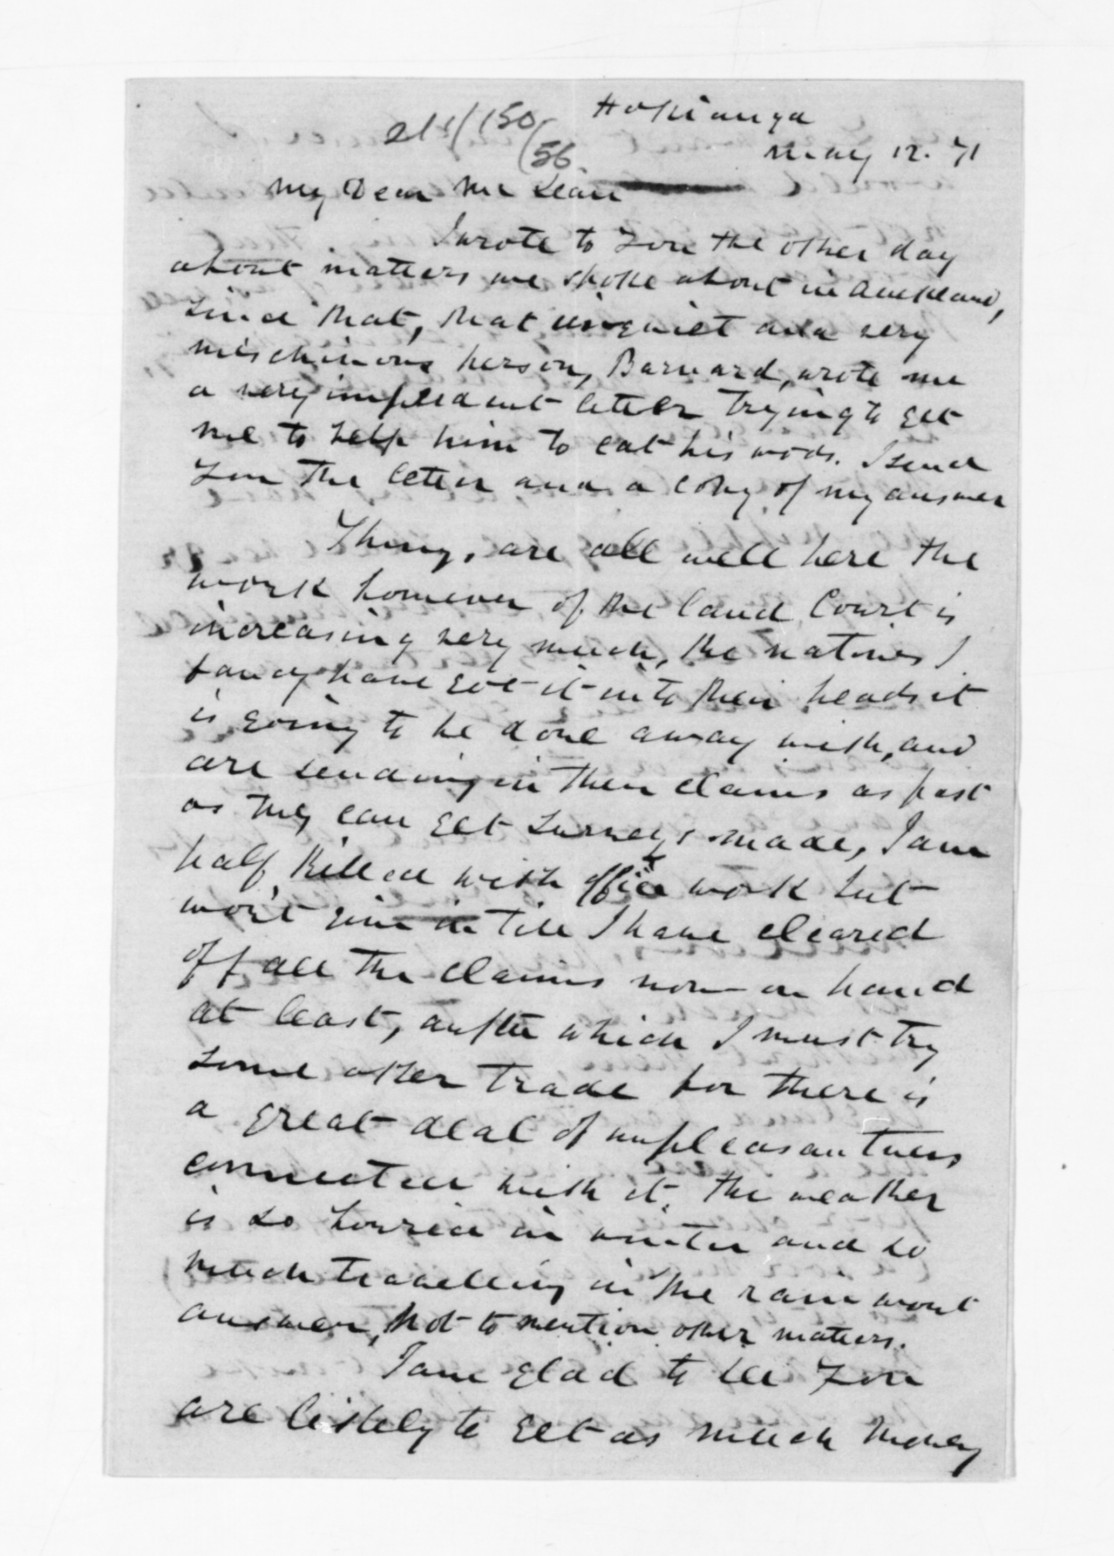 Hokianga
May 12. 71
My Dear Mr Lean
I wrote to you the other day
about matters we spoke about in Auckland,
since that, that unquiet and very
mischievous person, Barnard, wrote me
a very impudent letter trying to get
me to help him to eat his words. I send
you the letter and a copy of my answer
Things are all well here the
work however of the land Court is
increasing very much, the natives I
fancy have got it into their heads it
is going to be done away with, and
are sending in their claims as fast
as they can get surveys made, I am
half killed with office work but
wo'nt give in till I have cleared
off all the claims now on hand
at least, after which I must try
some other trade for there is
a great deal of unpleasantness
connected with it, the weather
is so horrid in winter and so
much travelling in the rain wont
answer, Not to mention other matters.
I am glad to see you
are likely to get as much money